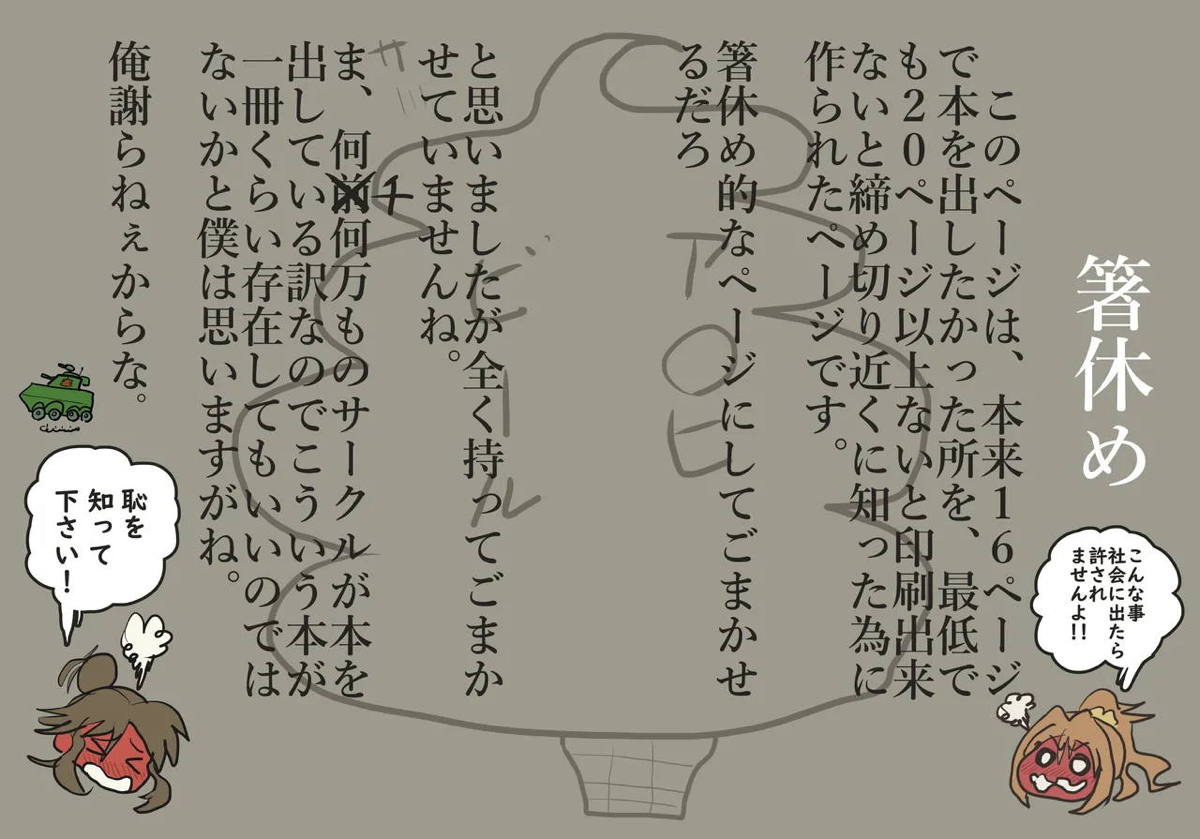 箸休め
このページは、本来16ページ
で本を出したかった所を、最低で
も20ページ以上ないと印刷出来
ないと締め切り近くに知った為に
作られたページです。
箸休め的なページにしてごまかせ
るだろ
と思いましたが全く持ってごまか
せていませんね。
ま、何千何万ものサークルが本を
出している訳なのでこういう本が
一冊くらい存在してもいいのでは
ないかと僕は思いますがね。
俺謝らねぇからな。
ア〇ヒ
ビール
こんな事
社会に出たら
許され
ませんよ!!
恥を
知って
下さい!